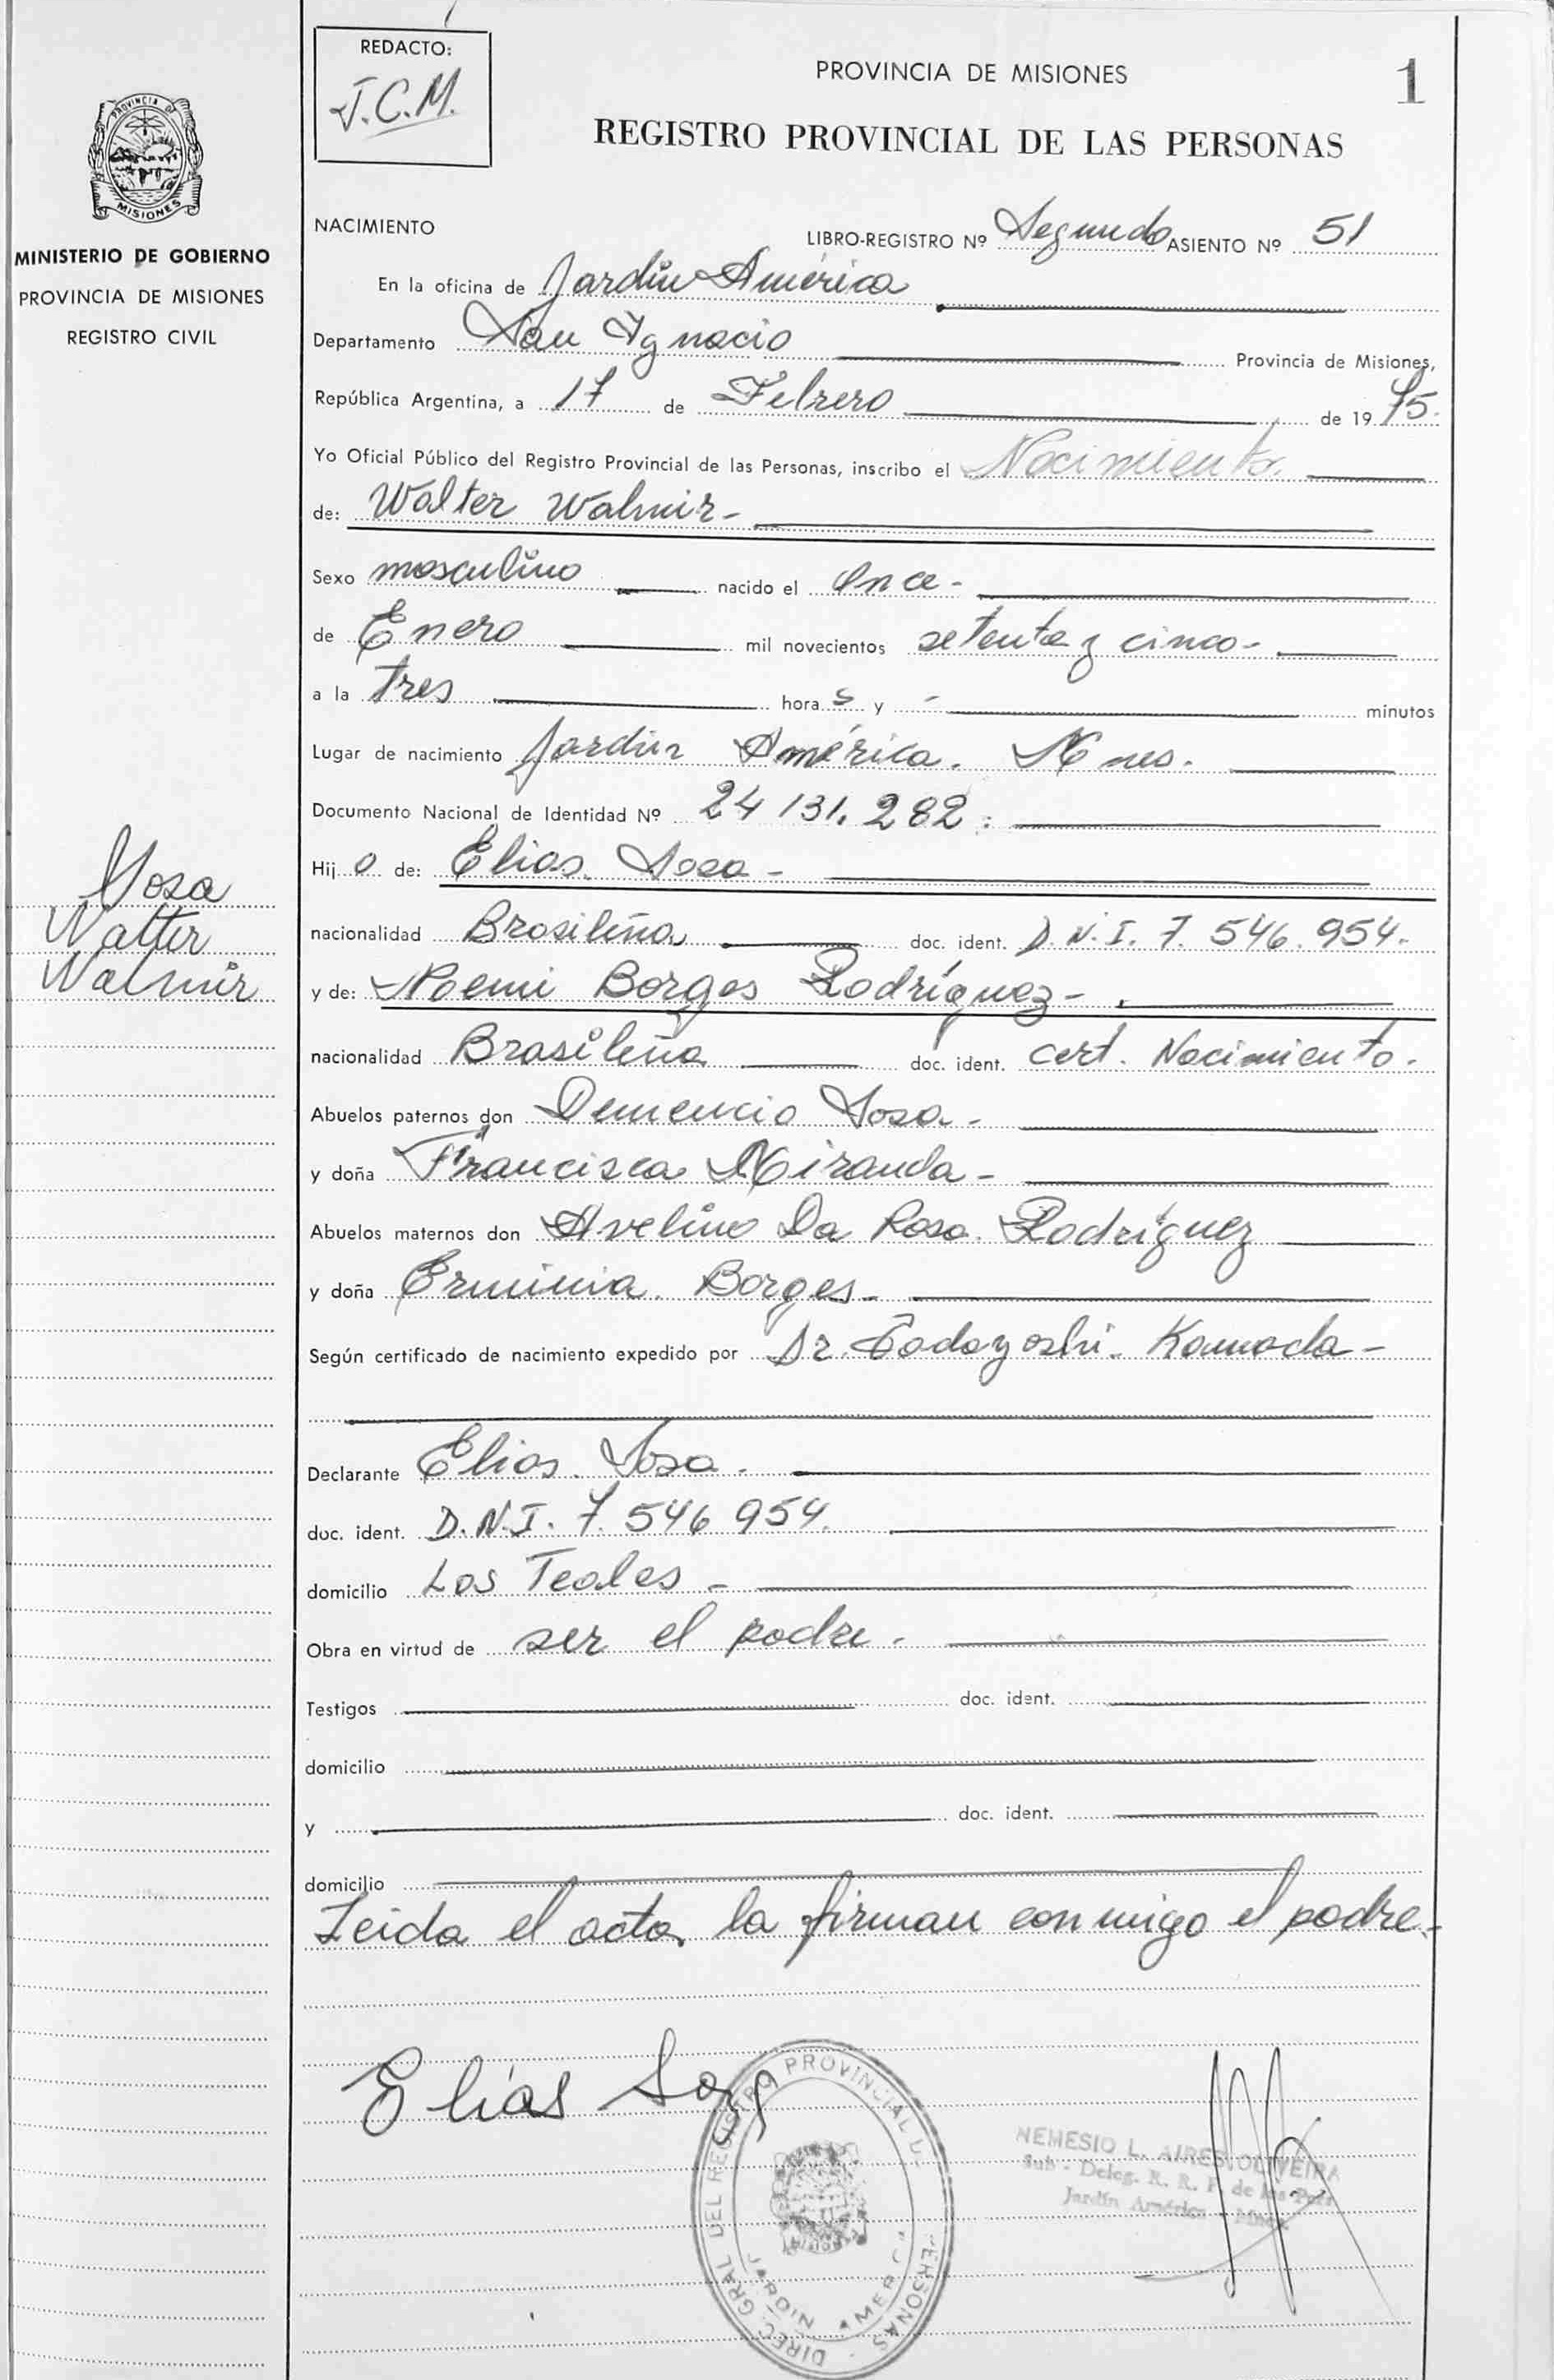 REDACTO:
J.C.M.
PROVINCIA DE MISIONES
1
REGISTRO PROVINCIAL DE LAS PERSONAS
PROVINCIA DE
MISIONES
MINISTERIO DE GOBIERNO
PROVINCIA DE MISIONES
REGISTRO CIVIL
NACIMIENTO LIBRO-REGISTRO Nº Segundo ASIENTO Nº 51
En la oficina de Jardín América
Departamento San Ignacio Provincia de Misiones,
República Argentina, a 17 de Febrero de 1975.
Yo Oficial Público del Registro Provincial de las Personas, inscribo el Nacimiento.
de: Walter Walmir-
Sexo masculino nacido el Once-
de Enero mil novecientos setenta y cinco-
a la tres hora s y - minutos
Lugar de nacimiento Jardín América. Mnes.
Documento Nacional de Identidad Nº 24 131. 282.
Hij o de: Elias. Sosa-
Sosa
Walter
Walmir
nacionalidad Brasileña doc. ident. D.N.I. 7. 546. 954.
y de: Noemi Borges Rodríguez-
nacionalidad Brasileña doc. ident. cert. Nacimiento.
Abuelos paternos don Demencio Sosa-
y doña Francisca Miranda-
Abuelos maternos don Avelino Da Rosa. Rodríguez
y doña Erminia. Borges-
Según certificado de nacimiento expedido por Dr. Todayoshi. Kamada-
Declarante Elias. Sosa.
doc. ident. D.N.I. 7. 546 954.
domicilio Los Teales-
Obra en virtud de ser el padre.
Testigos doc. ident.
domicilio
y doc. ident.
domicilio
Leida el acta, la firman conmigo el padre.
Elías Sosa
DIREC. GRAL DEL REGISTRO PROVINCIAL PERSONAS
JARDIN AMERICA
NEMESIO L. AIRES OLIVEIRA
Sub - Deleg. R. R. P. de las Pers.
Jardín América - Mnes.